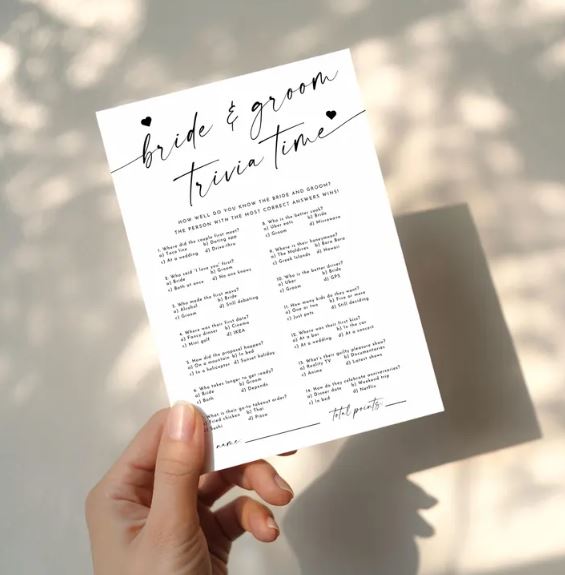 bride & groom
trivia time
HOW WELL DO YOU KNOW THE BRIDE AND GROOM?
THE PERSON WITH THE MOST CORRECT ANSWERS WINS!
1. Where did the couple first meet?
a) Taco line b) Dating app
c) At a wedding d) Drive thru
2. Who said 'I love you' first?
a) Bride b) Groom
c) Both at once d) No one knows
3. Who made the first move?
a) Alcohol b) Bride
c) Groom d) Still debating
4. Where was their first date?
a) Fancy dinner b) Cinema
c) Mini golf d) IKEA
5. How did the proposal happen?
a) On a mountain b) In bed
c) In a helicopter d) Sunset holiday
6. Who takes longer to get ready?
a) Bride b) Groom
c) Both d) Depends
What is their go-to takeout order?
Fried chicken b) Thai
Sushi d) Pizza
8. Who is the better cook?
a) Uber eats b) Bride
c) Groom d) Microwave
9. Where is their honeymoon?
a) The Maldives b) Bora Bora
c) Greek Islands d) Hawaii
10. Who is the better driver?
a) Uber b) Bride
c) Groom d) GPS
11. How many kids do they want?
a) One or two b) Five or more
c) Just pets d) Still deciding
12. Where was their first kiss?
a) At a bar b) In the car
c) At a wedding d) At a concert
13. What's their guilty pleasure show?
a) Reality TV b) Documentaries
c) Anime d) Latest shows
14. How do they celebrate anniversaries?
a) Dinner date b) Weekend trip
c) In bed d) Netflix
name
total points: